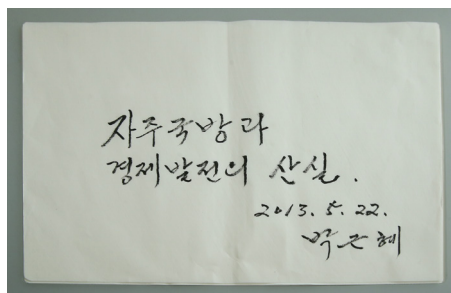 자주국방과
경제발전의 산실.
2013. 5. 22.
박근혜